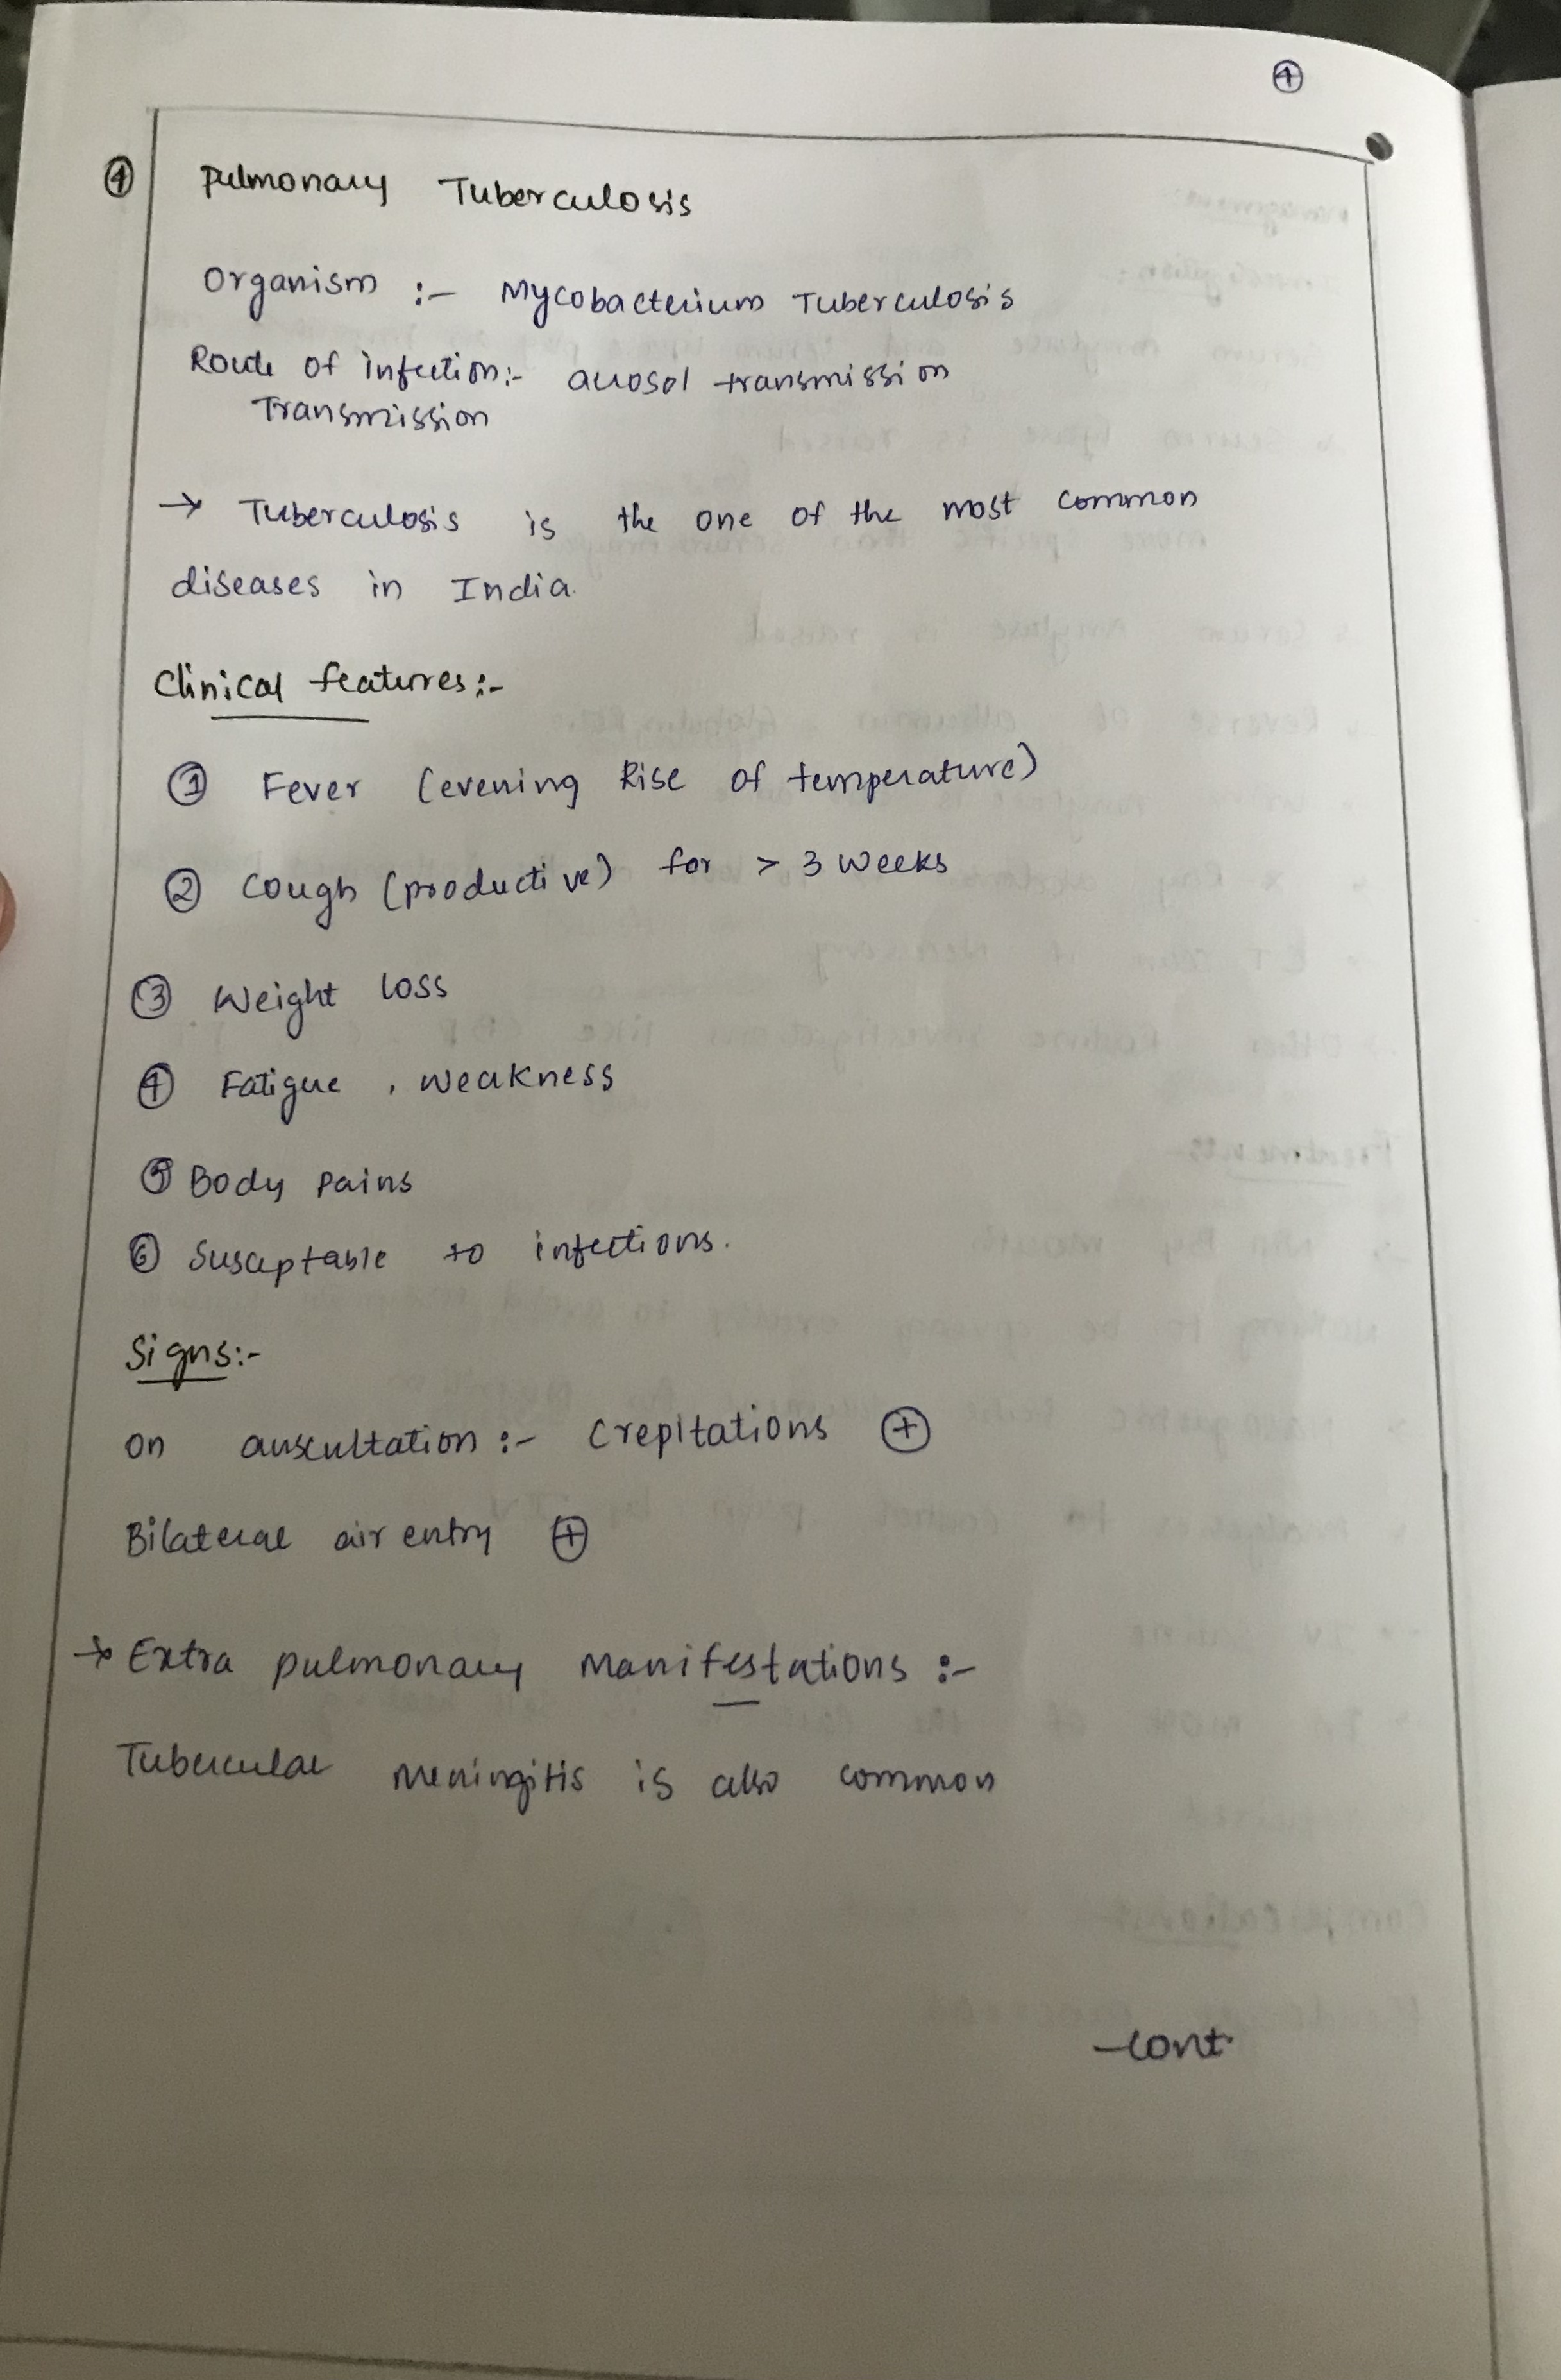 ④
④ Pulmonary Tuberculosis
Organism :- Mycobacterium Tuberculosis
Route of infection:- aerosol transmission
Transmission
→ Tuberculosis is the one of the most common
diseases in India.
Clinical features:-
① Fever (evening Rise of temperature)
② Cough (productive) for > 3 weeks
③ Weight loss
④ Fatigue, weakness
⑤ Body pains
⑥ Susceptable to infections.
Signs:-
on auscultation :- crepitations ⊕
Bilateral air entry ⊕
→ Extra pulmonary Manifestations :-
Tubercular meningitis is also common
-cont.